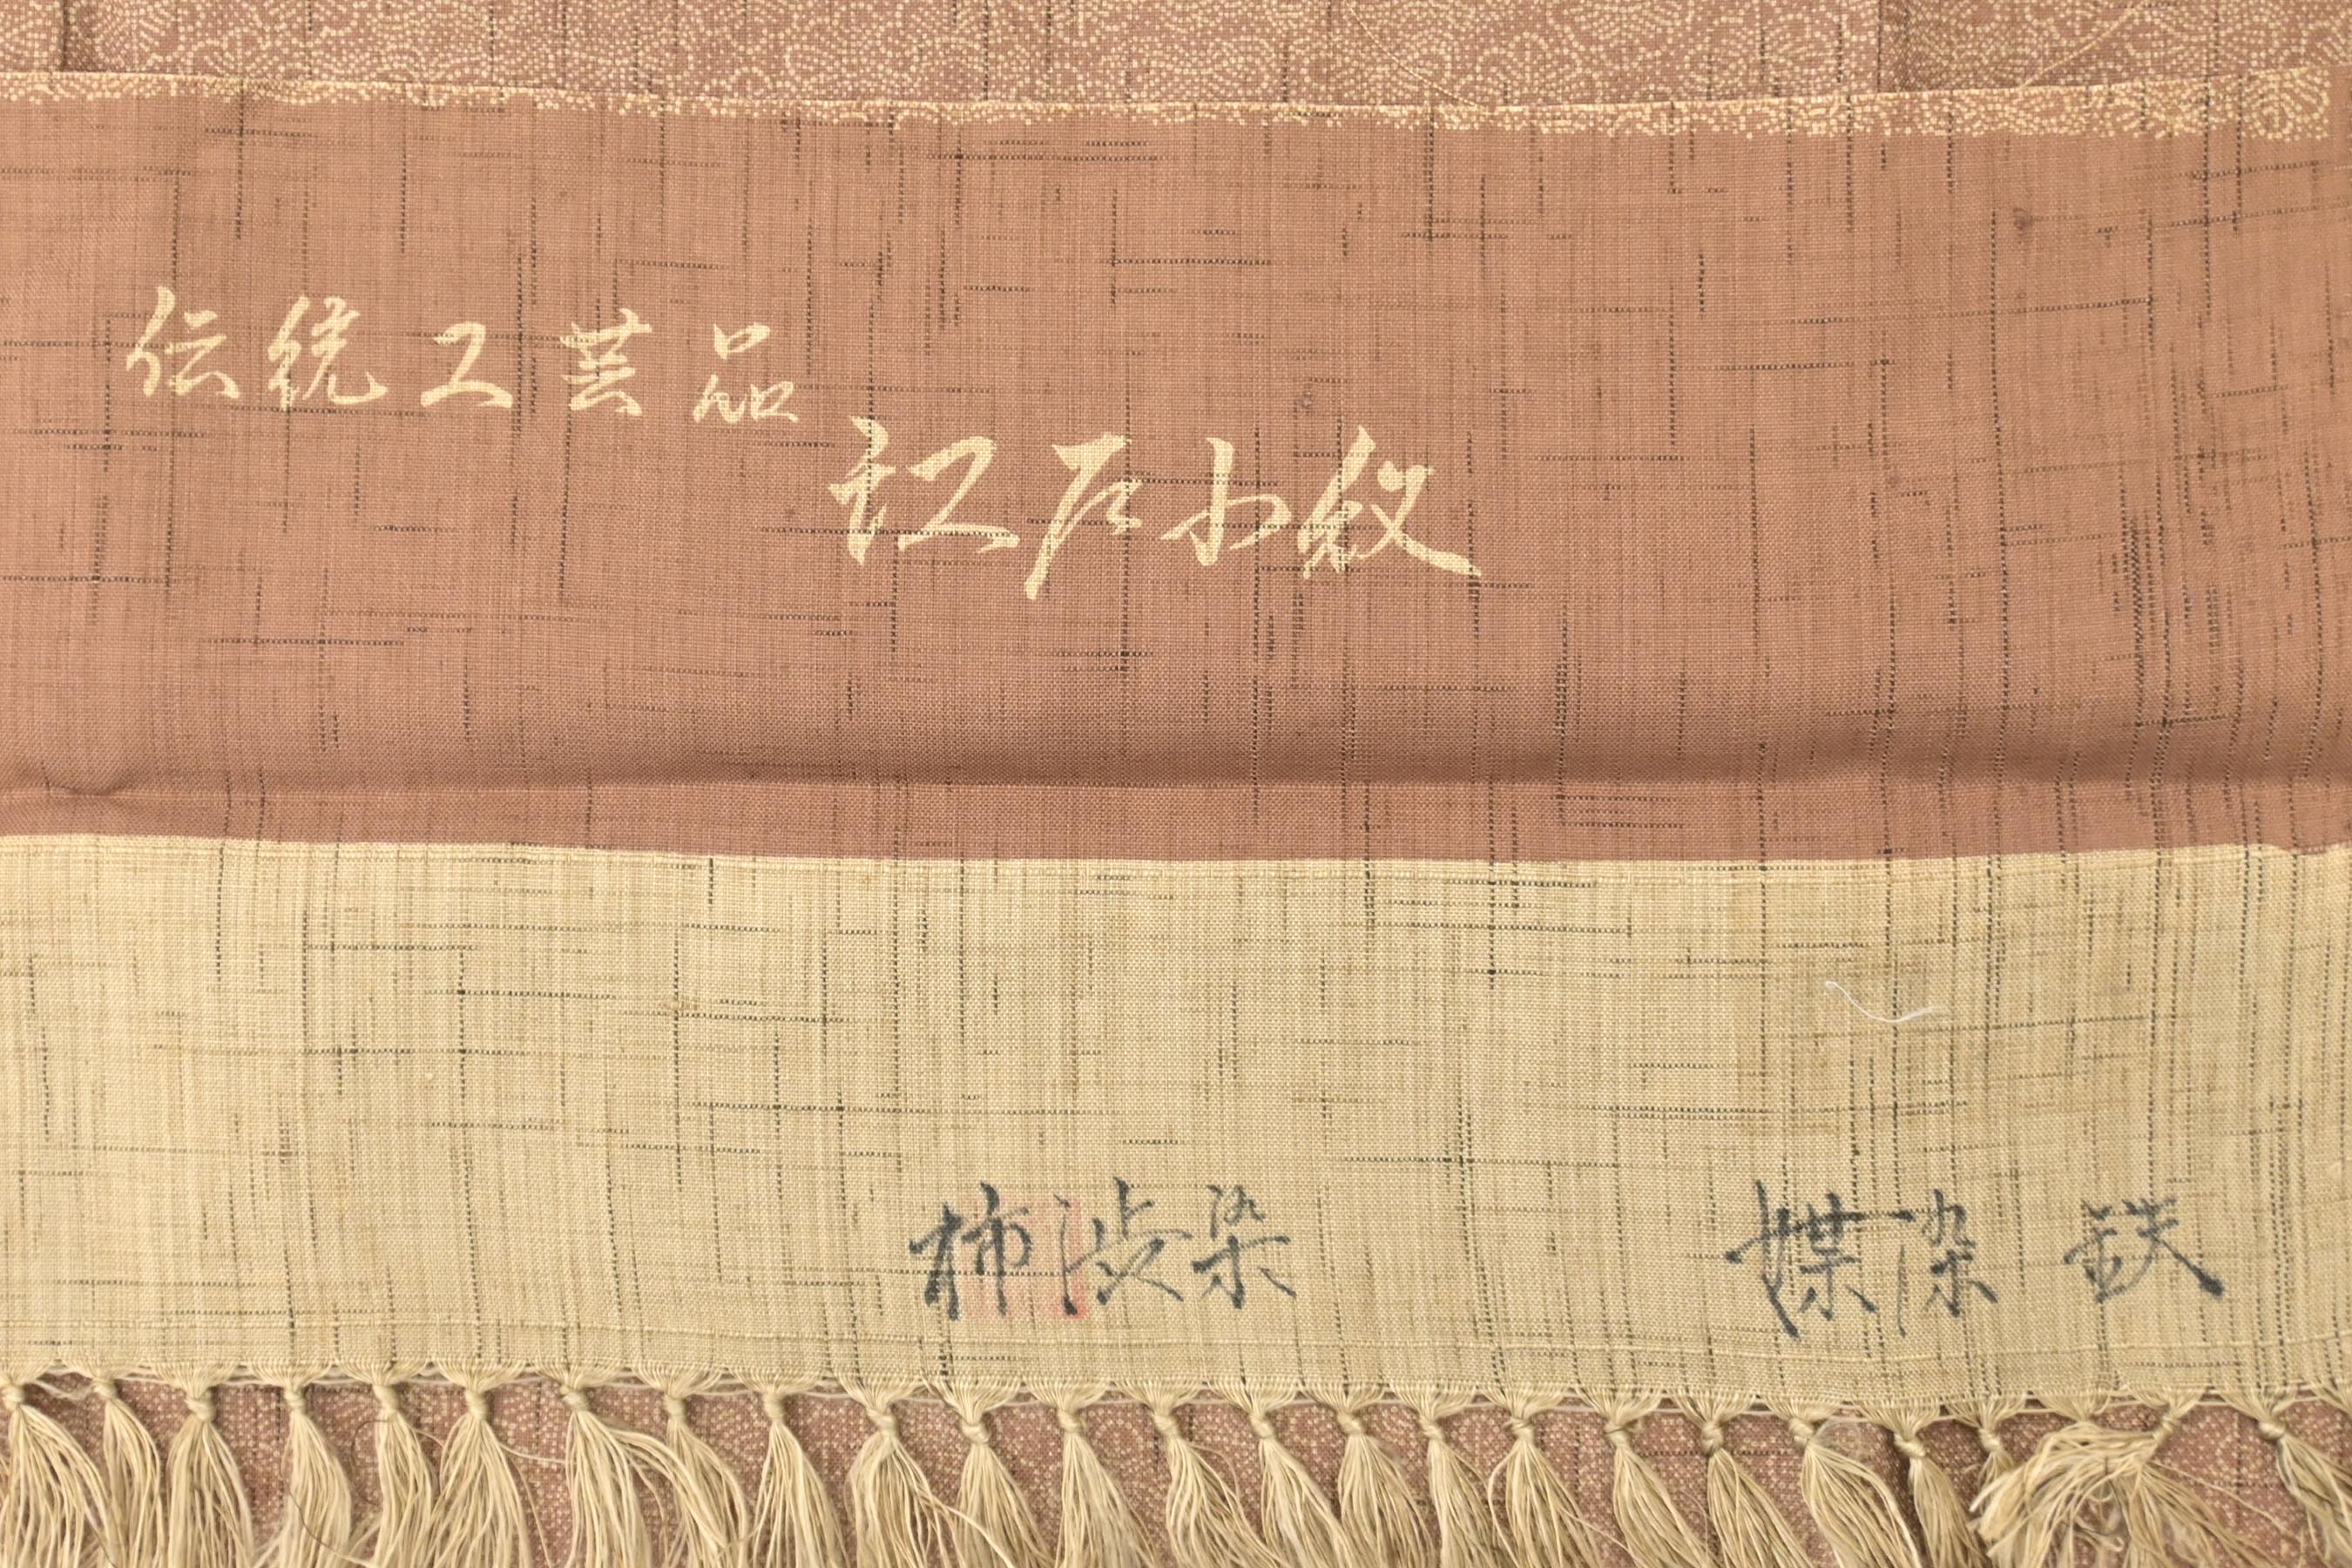 伝統工芸品
江戸小紋
柿渋染
媒染 鉄